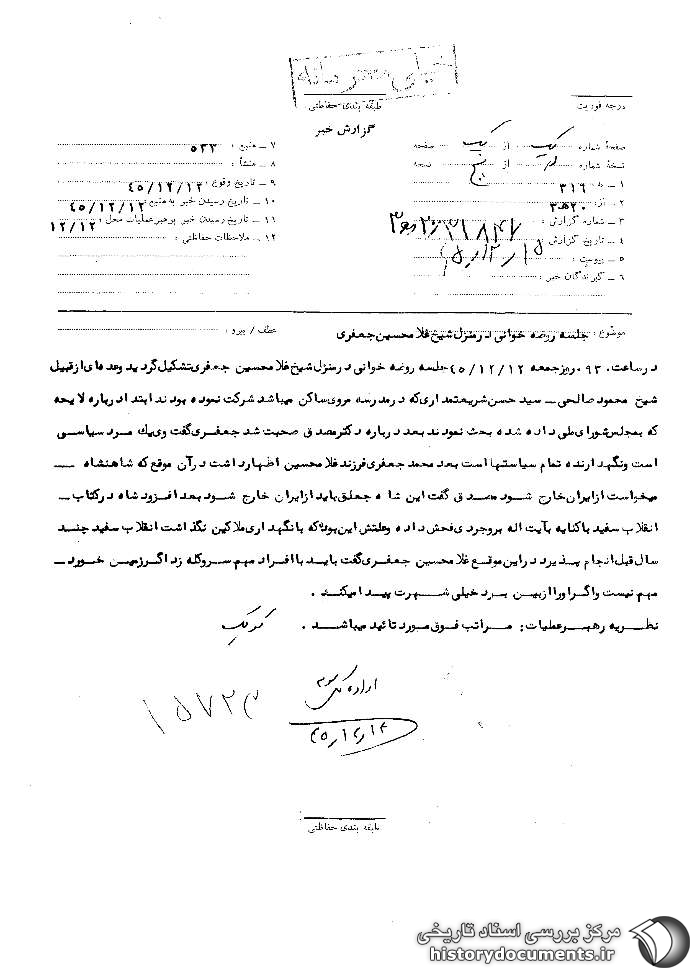 طبقه بندی حفاظتی
درجه فوریت
گزارش خبر
صفحهٔ شماره یک از یک صفحه
نسخهٔ شماره از پنج نسخه
۱ ـ به ۳۱۶
۲ ـ از ۲۰ه۳
۳ ـ شماره گزارش :
۴ ـ تاریخ گزارش :
۵ ـ پیوست :
۶ ـ گیرندگان خبر :
۷ ـ منبع : ۵۳۳
۸ ـ منشأ :
۹ ـ تاریخ وقوع : ۴۵/۱۲/۱۲
۱۰ ـ تاریخ رسیدن خبر به منبع : ۴۵/۱۲/۱۲
۱۱ ـ تاریخ رسیدن خبر برهبر عملیات محل : ۱۲/۱۲
۱۲ ـ ملاحظات حفاظتی :
موضوع : جلسه روضه خوانی در منزل شیخ غلامحسین جعفری
عطف / پیرو :
در ساعت ۹۳۰ روز جمعه ۴۵/۱۲/۱۲ جلسه روضه خوانی در منزل شیخ غلامحسین جعفری تشکیل گردید و عده ای از قبیل
شیخ محمود صالحی ـ سید حسن شریعتمداری که در مدرسه مروی ساکن میباشد شرکت نموده بودند ابتدا درباره لایحه
که بمجلس شورای ملی داده شده بحث نمودند بعد درباره دکتر مصدق صحبت شد جعفری گفت وی یک مرد سیاسی
است و نگهدارنده تمام سیاستها است بعد محمد جعفری فرزند غلامحسین اظهار داشت در آن موقع که شاهنشاه ـ
میخواست از ایران خارج شود مصدق گفت این شاه جعلق باید از ایران خارج شود بعد افزود شاه در کتاب ـ
انقلاب سفید با کنایه بآیت اله بروجردی فحش داده و علتش این بود که با نگهداری ملاکین نگذاشت انقلاب سفید چند
سال قبل انجام پذیرد در این موقع غلامحسین جعفری گفت باید با افراد مهم سروکله زد اگر زمین خورد ـ
مهم نیست واگر او را از بین برد خیلی شهرت پیدا میکند .
نظریه رهبر عملیات : مراتب فوق مورد تائید میباشد .
اداره کل سوم
۴۵/۱۲/۱۴
۱۵۷۲۳
طبقه بندی حفاظتی
مرکز بررسی اسناد تاریخی
historydocuments.ir